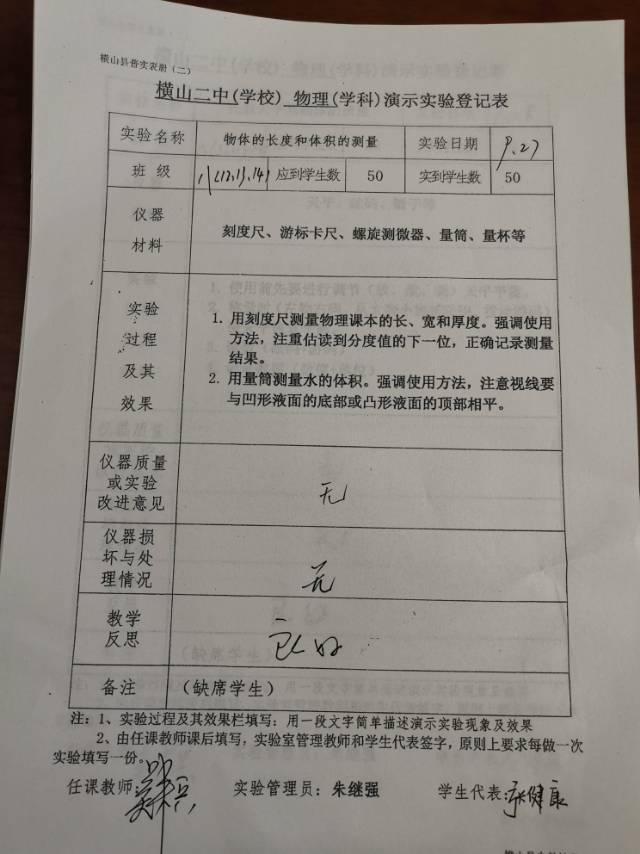 横山县普实表册（二）
横山二中(学校) 物理(学科)演示实验登记表
实验名称 物体的长度和体积的测量 实验日期 9.27
班 级 应到学生数 50 实到学生数 50
仪器
材料
刻度尺、游标卡尺、螺旋测微器、量筒、量杯等
实验
过程
及其
效果
1. 用刻度尺测量物理课本的长、宽和厚度。强调使用
方法，注重估读到分度值的下一位，正确记录测量
结果。
2. 用量筒测量水的体积。强调使用方法，注意视线要
与凹形液面的底部或凸形液面的顶部相平。
仪器质量
或实验
改进意见
无
仪器损
坏与处
理情况
无
教学
反思
备注 （缺席学生）
注：1、实验过程及其效果栏填写：用一段文字简单描述演示实验现象及效果
2、由任课教师课后填写，实验室管理教师和学生代表签字，原则上要求每做一次
实验填写一份。
任课教师： 实验管理员：朱继强 学生代表：